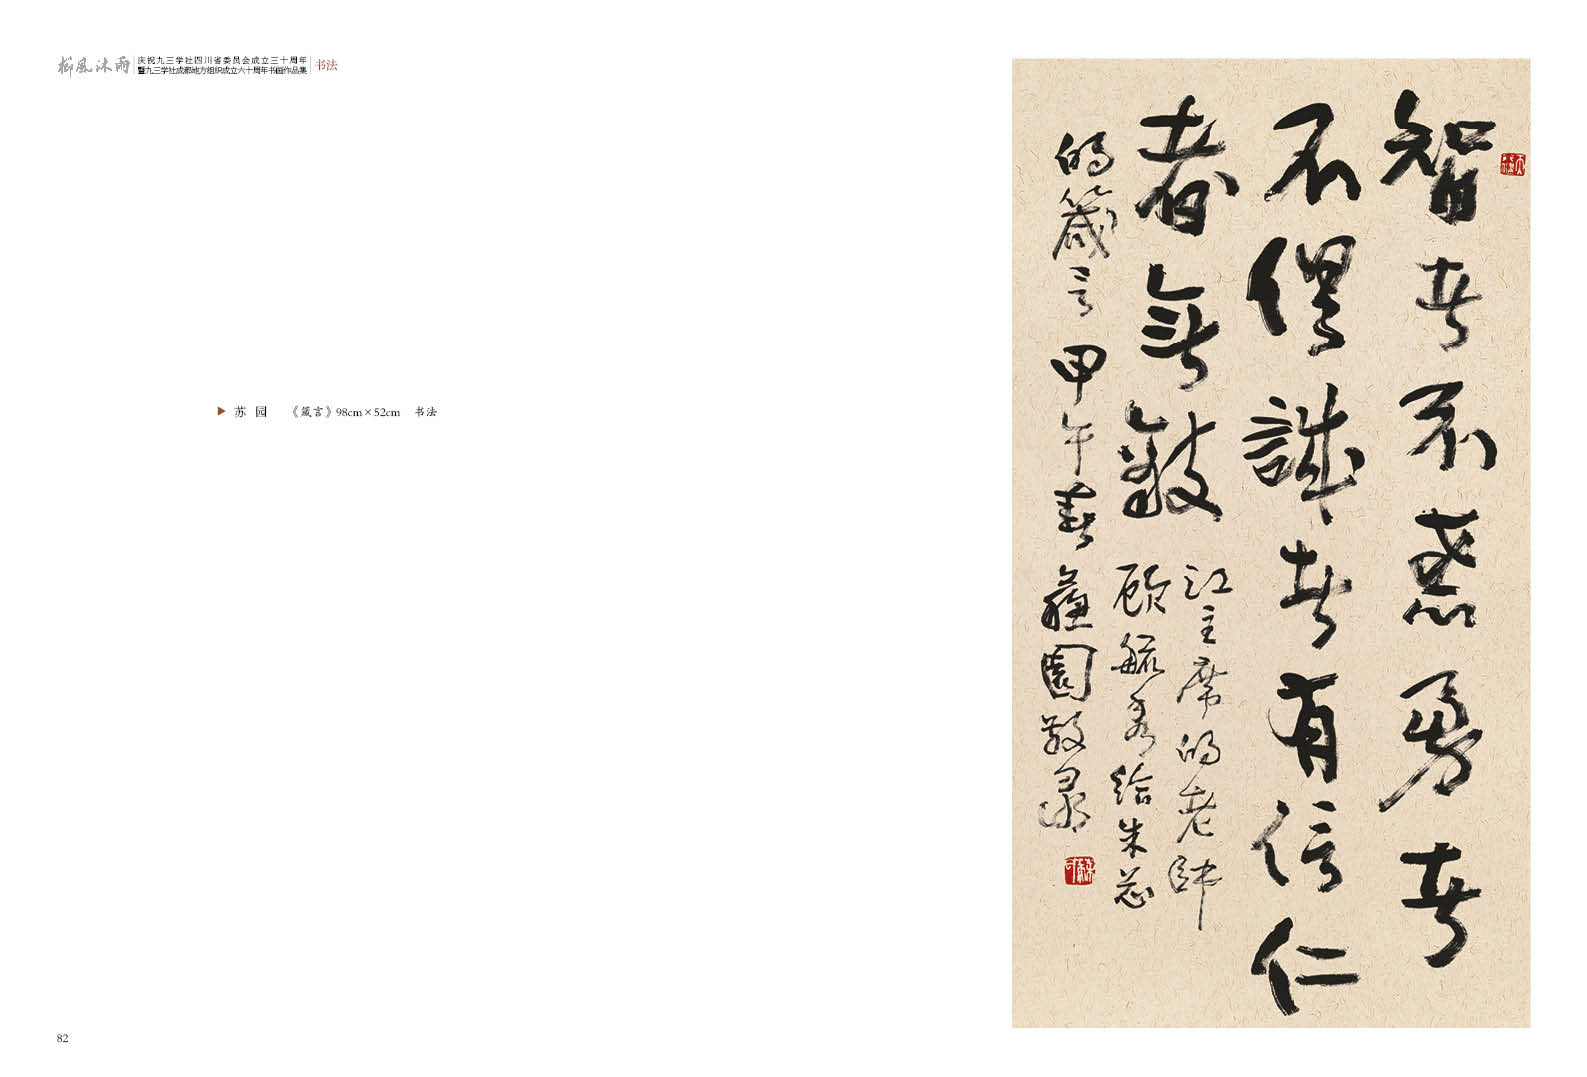 櫛風沐雨
庆祝九三学社四川省委员会成立三十周年
暨九三学社成都地方组织成立六十周年书画作品集
书法
苏 园 《箴言》98cm×52cm 书法
智者不惑勇者
不惧誠者有信仁
者無敵
江主席的老師
顾毓秀給朱总
的箴言 甲午春 蘇園敬录
82